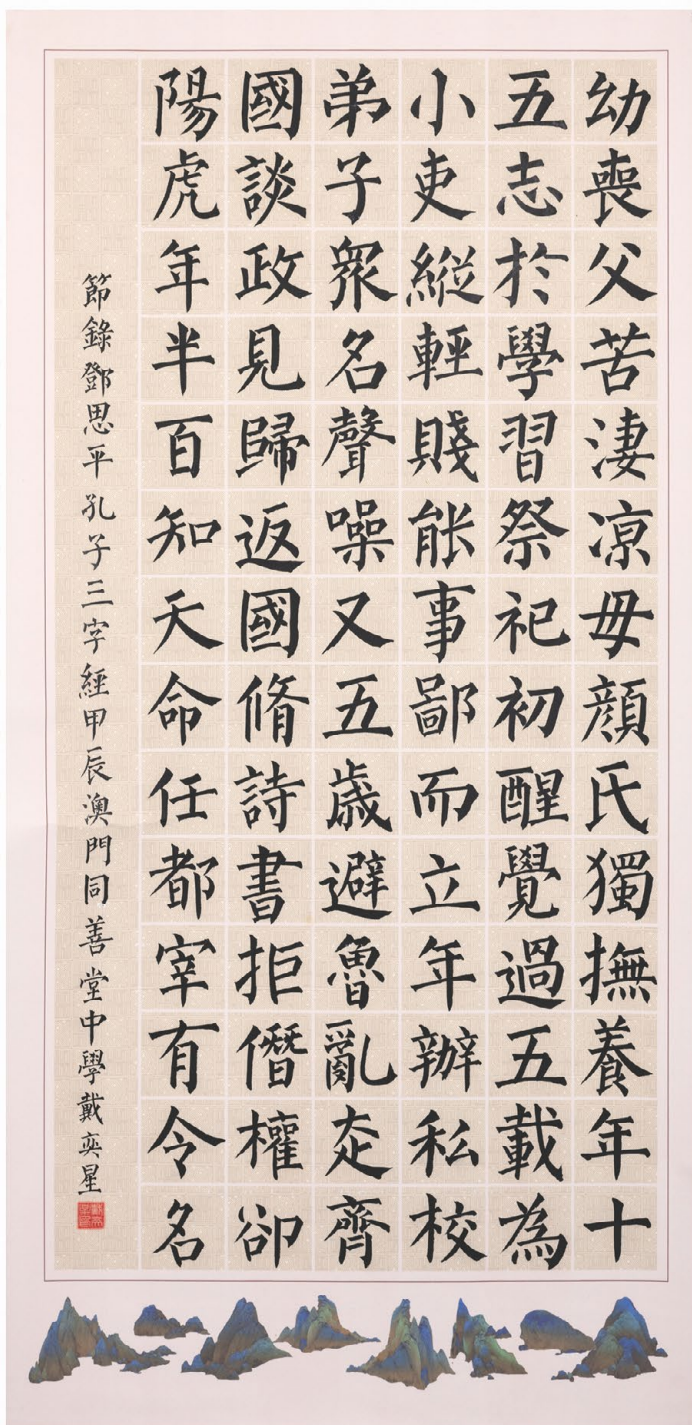 幼喪父苦淒凉毋顔氏獨撫養年十
五志於學習祭祀初醒覺過五載為
小吏縱輕賤能事鄙而立年辦私校
弟子衆名聲噪又五歲避魯亂走齊
國談政見歸返國脩詩書拒僭權卻
陽虎年半百知天命任都宰有令名
節錄鄧思平孔子三字經甲辰澳門同善堂中學戴奕星